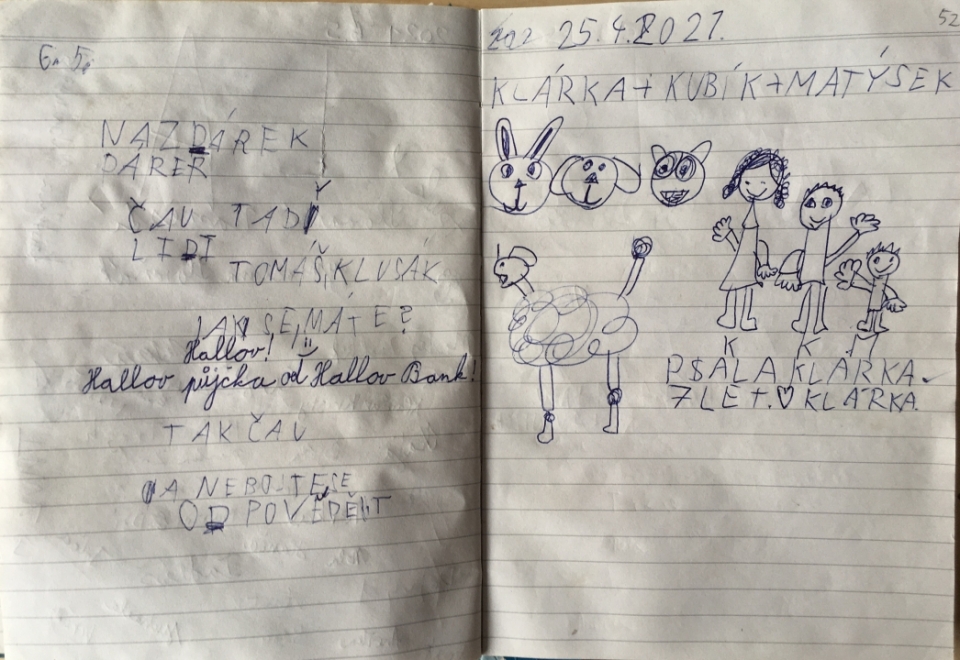 6. 5.
NAZDÁREK
DÁREŘ
ČAU TADY
LIDI
TOMÁŠ KLUSÁK
JAK SE MÁTE?
Hallov!
Hallov půjčka od Hallov Bank!
TAK ČAU
A NEBOJTE SE
ODPOVĚDĚT
52
25.4.2021.
KLÁRKA+KUBÍK+MATÝSEK
K K M
PSALA KLÁRKA.
7 LET.♡ KLÁRKA.